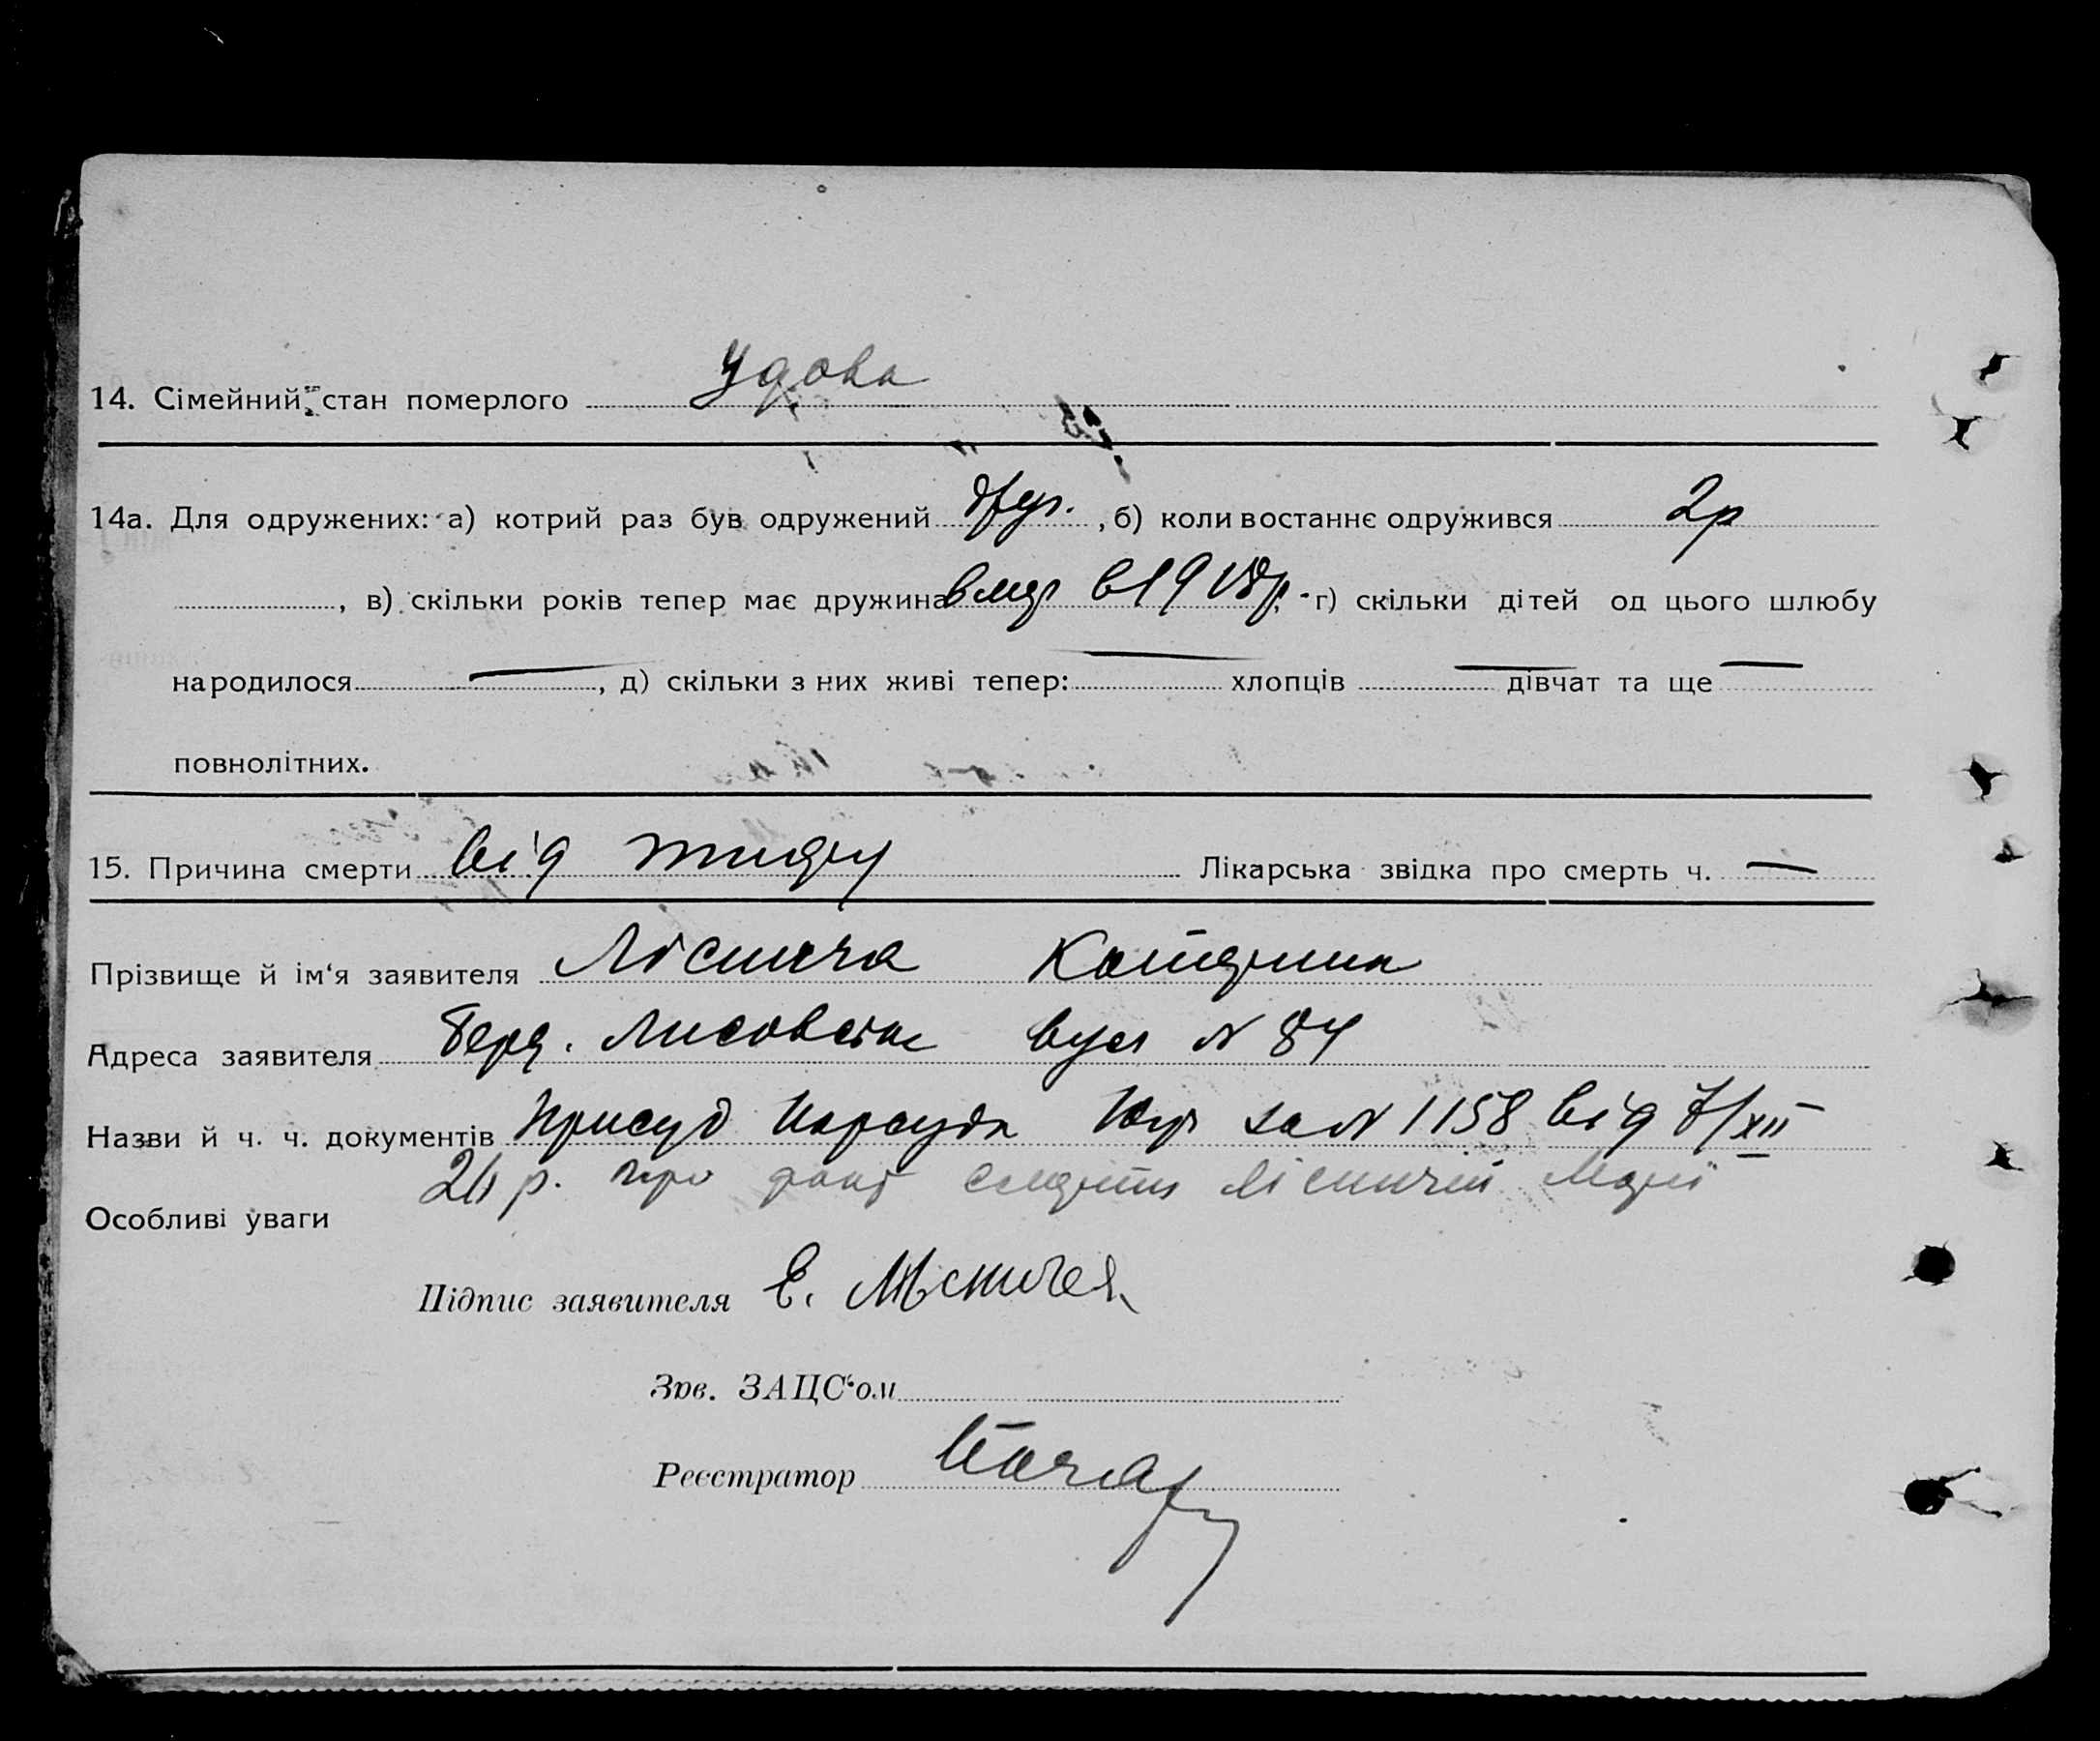 14. Сімейний стан померлого Удова
14а. Для одружених: а) котрий раз був одружений друг. , б) коли востаннє одружився 2р
, в) скільки років тепер має дружина вмер в 19 р. г) скільки дітей од цього шлюбу
народилося — , д) скільки з них живі тепер: — хлопців — дівчат та ще —
повнолітних.
15. Причина смерти від тифу Лікарська звідка про смерть ч. —
Прізвище й ім'я заявителя Ліснича Катерина
Адреса заявителя Берд. Лисовська вул N 84
Назви й ч. ч. документів Присуд Нарсуда за N 1158 від 7/XII
26 р. про факт смерти Лісничій Марії
Особливі уваги
Підпис заявителя Е. Лѣсничея
Зав. ЗАЦС'ом
Реєстратор